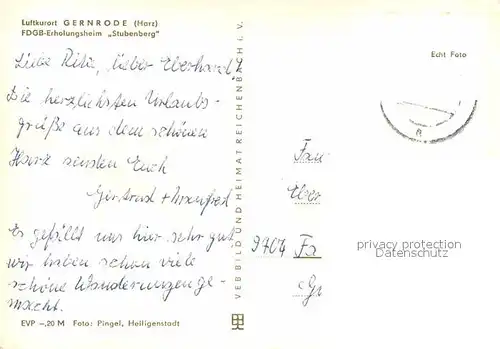 Luftkurort GERNRODE (Harz)
FDGB-Erholungsheim „Stubenberg"
Echt Foto
Liebe Rita, lieber Eberhard!
Die herzlichsten Urlaubs-
grüße aus dem schönen
Harz senden Euch
Gertraud + Manfred
Es gefällt uns hier sehr gut
wir haben schon viele
schöne Wanderungen ge-
macht.
VEB BILD UND HEIMAT REICHENBACH I. V.
Fam
Eber
9704 Fa
privacy protection
Datenschutz
EVP –,20 M Foto: Pingel, Heiligenstadt